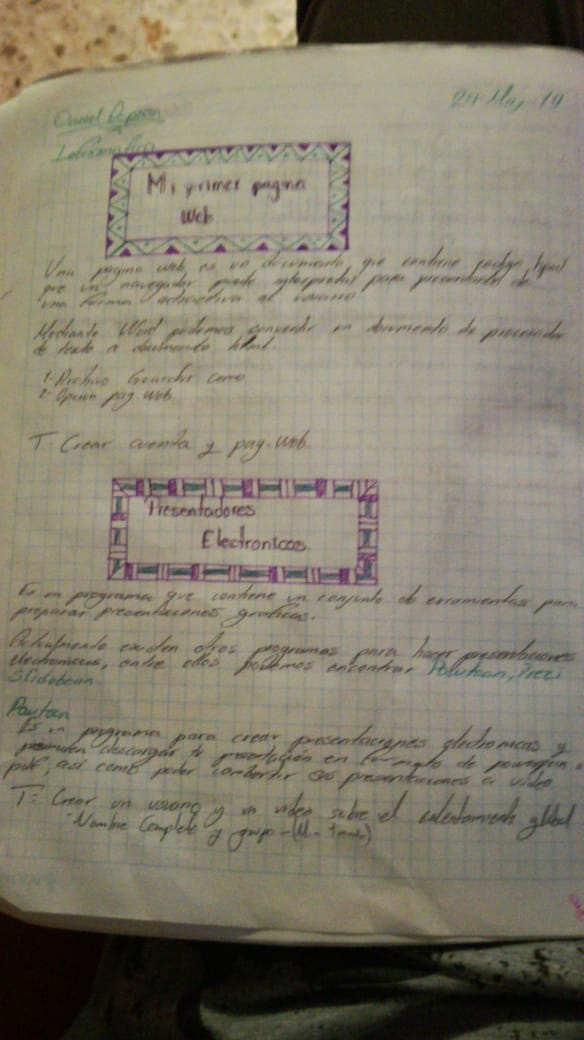 Daniel
29-May-19
Informatica
Mi primer pagina
Web
Una pagina web, es un documento, que contiene codigo html
que un navegador puede interpretar para presentarlo de
una forma atractiva al usuario
Mediante Word podemos convertir un documento de procesador
de texto a documento html.
1-Archivo Guardar como
2-Opcion pag. web
T: Crear cuenta y pag. web
Presentadores
Electronicos.
Es un programa que contiene un conjunto de erramientas para
preparar presentaciones graficas.
Actualmente existen otros programas para hacer presentaciones
electronicas, entre ellos podemos encontrar Powtoon, Prezi
Slidebean.
Powtoon
Es un programa para crear presentaciones electronicas y
descargar tu presentación en formato de powerpoint o
pdf, asi como poder convertir sus presentaciones a video
T: Crear un usuario y un video sobre el calentamiento global
Nombre Completo y grupo - (